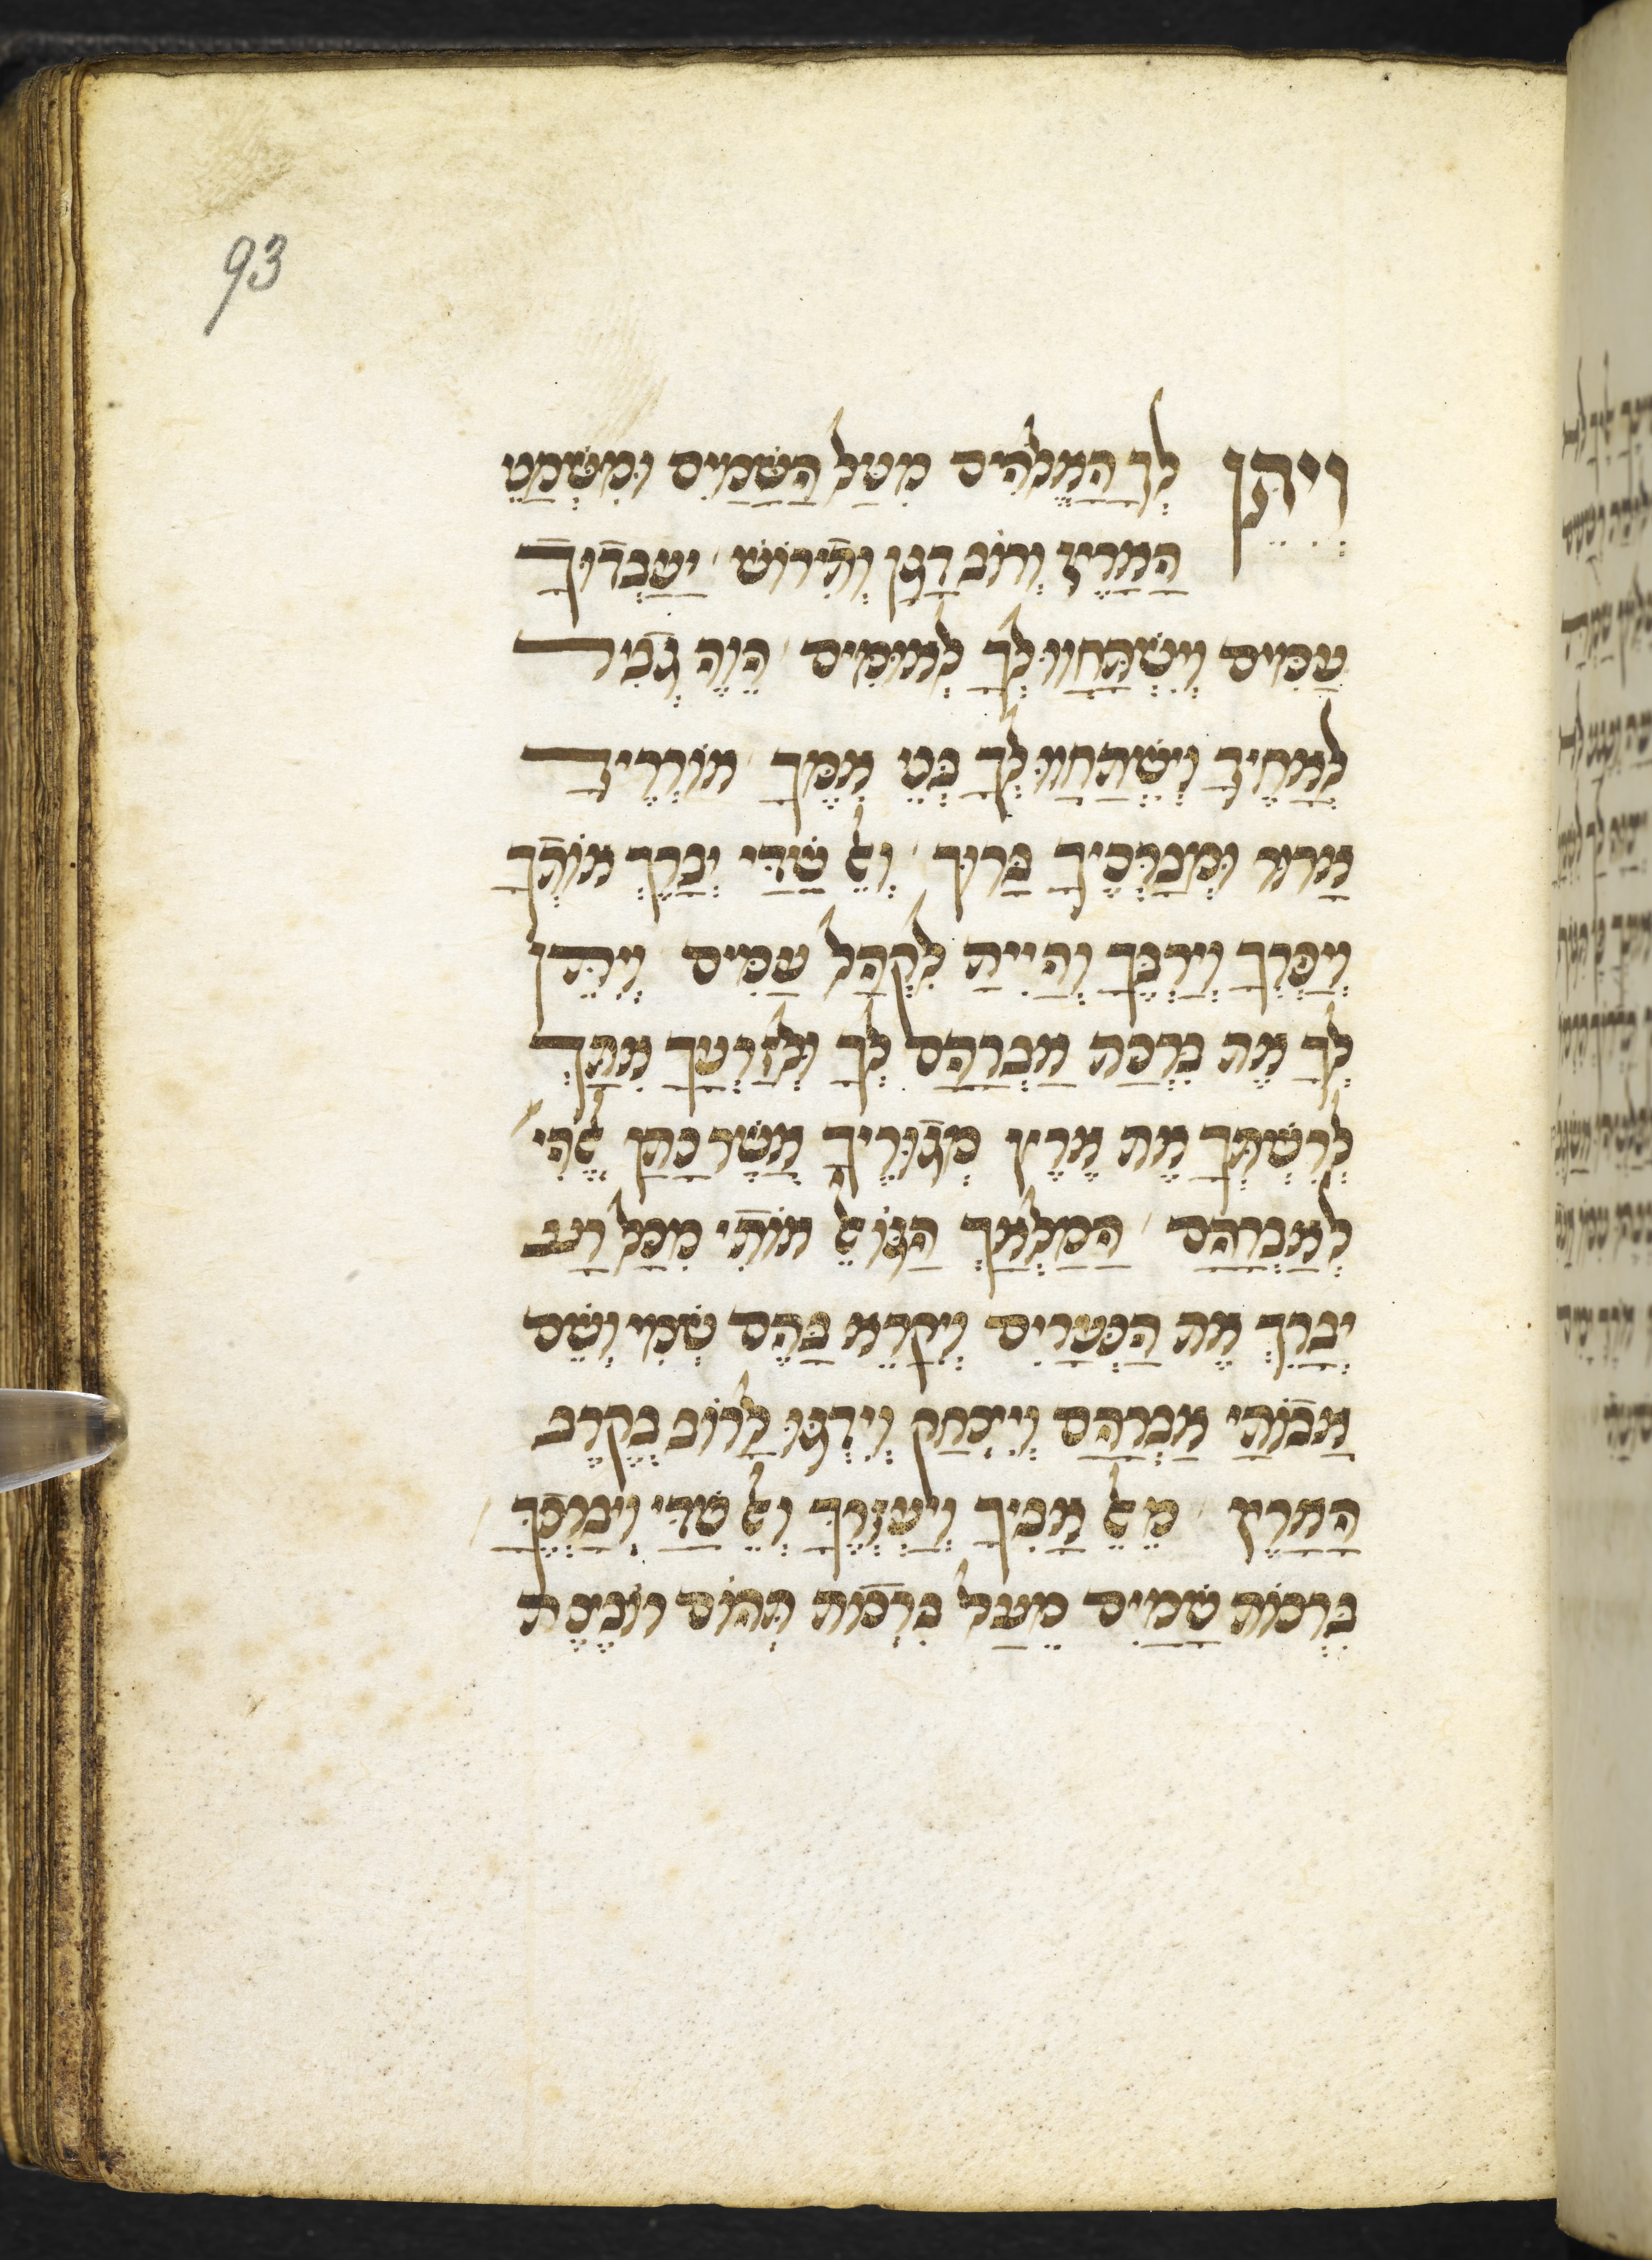 93
וְיִתֵּן לְךָ הָאֱלֹהִים מִטַּל הַשָּׁמַיִם וּמִשְּׁמַנֵּי
הַאָרֶץ וְרוֹב דָגָן וְתִירוֹשׁ יַעַבְדוּךָ
עַמִּים וְיִשְׁתַּחֲווּ לְךָ לְאוּמִּים הֱוֵה גְבִיר
לְאַחֶיךָ וְיִשְׁתַּחֲווּ לְךָ בְּנֵי אִמֶּךָ אוֹרְרֶיךָ
אָרוּר וּמְבָרְכֶיךָ בָּרוּךְ וְאֵל שַׁדַּי יְבָרֵךְ אוֹתְךָ
וְיַפְרְךָ וְיַרְבֶּךָ וְהָיִיתָ לִקְהַל עַמִּים וְיִתֵּן
לְךָ אֶת בִּרְכַת אַבְרָהָם לְךָ וּלְזַרְעֲךָ אִתָּךְ
לְרִשְׁתְּךָ אֶת אֶרֶץ מְגוּרֶיךָ אֲשֶׁר נָתַן אֱלֹהִי׳
לְאַבְרָהָם הַמַלְאָךְ הַגּוֹאֵל אוֹתִי מִכָּל רַע
יְבָרֵךְ אֶת הַנְּעָרִים וְיִקָרֵא בָּהֶם שְׁמִי וְשֵׁם
אֲבוֹתַי אַבְרָהָם וְיִצְחָק וְיִדְגּוּ לָרוֹב בְּקֶרֶב
הָאָרֶץ מֵאֵל אָבִיךָ וְיַעְזְרֶךָּ וְאֵל שַׁדַּי וִיבָרְכֶךָּ
בִּרְכוֹת שָׁמַיִם מֵעַל בִּרְכוֹת תְּהוֹם רוֹבֶצֶת